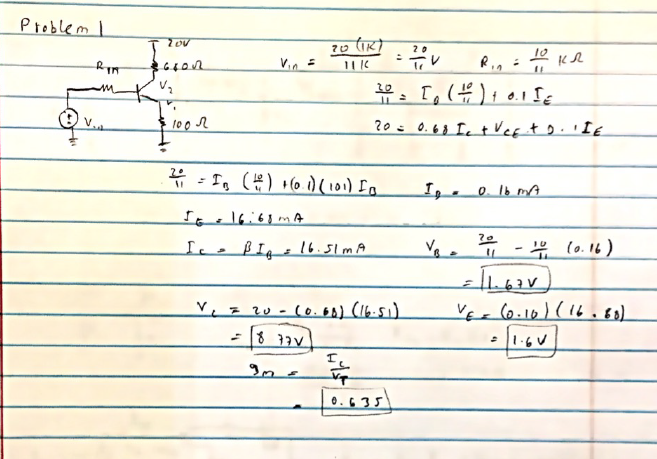 Problem 1
20V
R_in 680Ω
V_2
V_1
V_in 100Ω
V_in = 20 (1K) / 11K = 20/11 V R_in = 10/11 KΩ
20/11 = I_B (10/11) + 0.1 I_E
20 = 0.68 I_C + V_CE + 0.1 I_E
20/11 = I_B (10/11) + (0.1)(101) I_B I_B = 0.16 mA
I_E = 16.68 mA
I_C = β I_B = 16.51 mA V_B = 20/11 - 10/11 (0.16)
= 1.67V
V_C = 20 - (0.68) (16.51) V_E = (0.10) (16.68)
= 8.77V = 1.6V
g_m = I_C / V_T
= 0.635